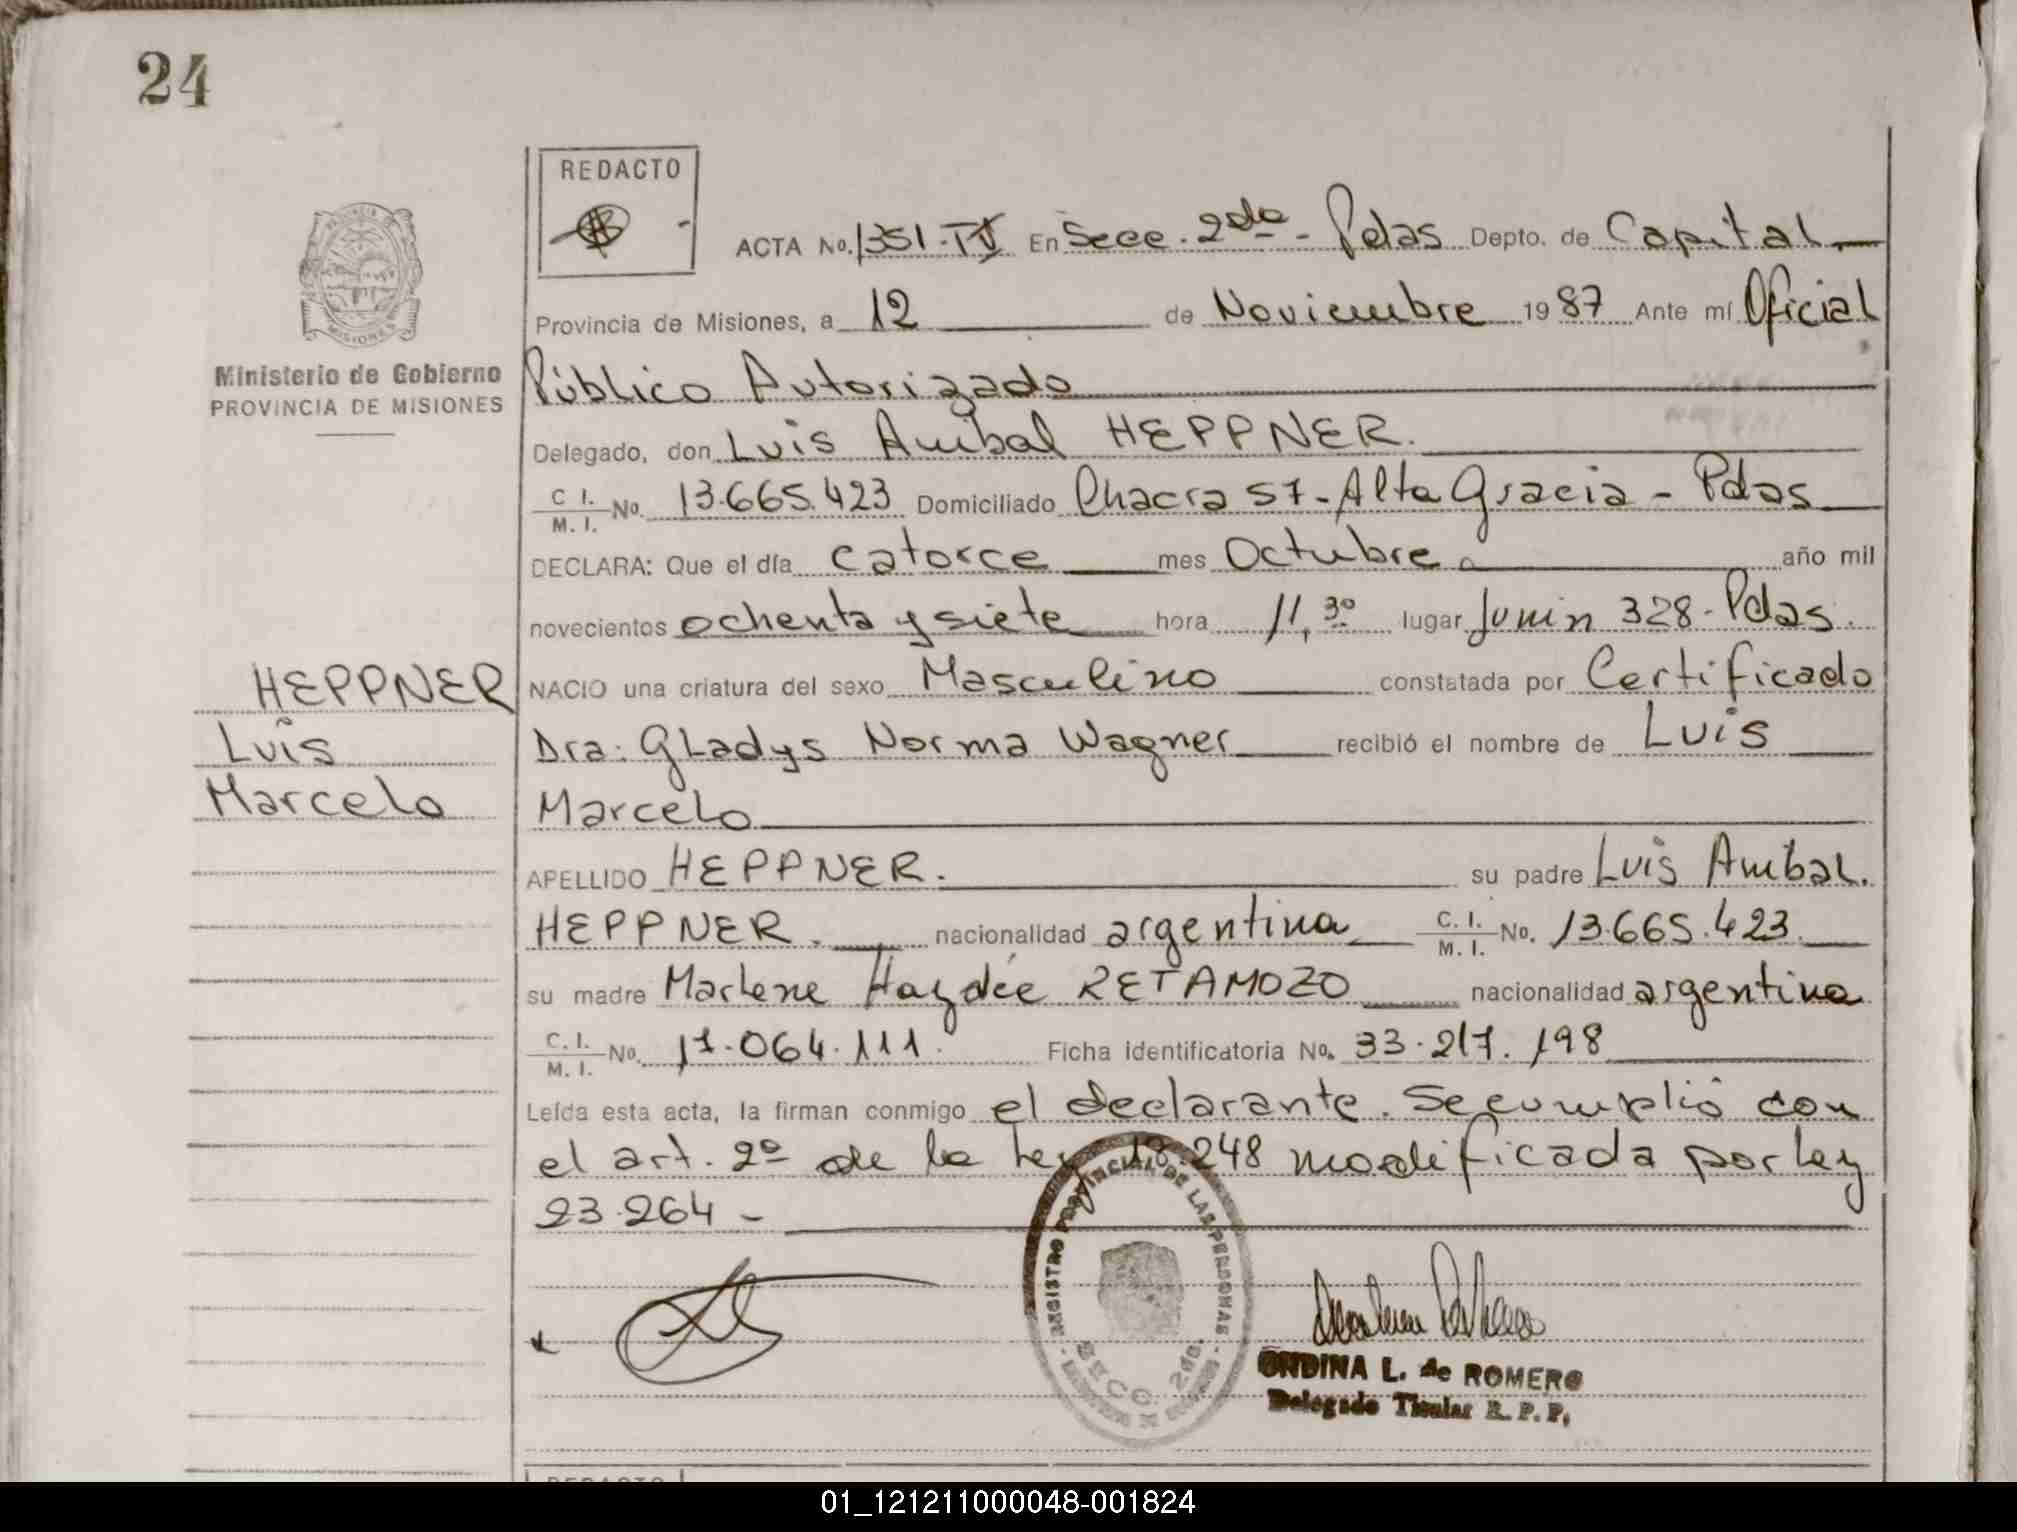 24
REDACTO
ACTA No. 1351-TV En Secc. 2da - Pdas Depto. de Capital
PROVINCIA DE MISIONES
Provincia de Misiones, a 12 de Noviembre 1987 Ante mí Oficial
Ministerio de Gobierno
PROVINCIA DE MISIONES
Público Autorizado
Delegado, don Luis Anibal HEPPNER.
C. I. M. I. No. 13.665.423 Domiciliado Chacra 57 - Alta Gracia - Pdas
DECLARA: Que el día catorce mes Octubre año mil
novecientos ochenta y siete hora 11,30 lugar Junin 328 - Pdas.
HEPPNER
NACIO una criatura del sexo Masculino constatada por Certificado
Luis
Dra: Gladys Norma Wagner recibió el nombre de Luis
Marcelo
Marcelo
APELLIDO HEPPNER. su padre Luis Anibal.
HEPPNER. nacionalidad argentina C. I. M. I. No. 13.665.423
su madre Marlene Haydée RETAMOZO nacionalidad argentina
C. I. M. I. No. 17.064.111. Ficha identificatoria No. 33.217.198
Leída esta acta, la firman conmigo el declarante. Se cumplió con
el art. 2º de la Ley 18.248 modificada por Ley
23.264 -
REGISTRO PROVINCIAL DE LAS PERSONAS
SECC. 2da.
ONDINA L. de ROMERO
Delegado Titular R. P. P.
REDACTO
01_121211000048-001824